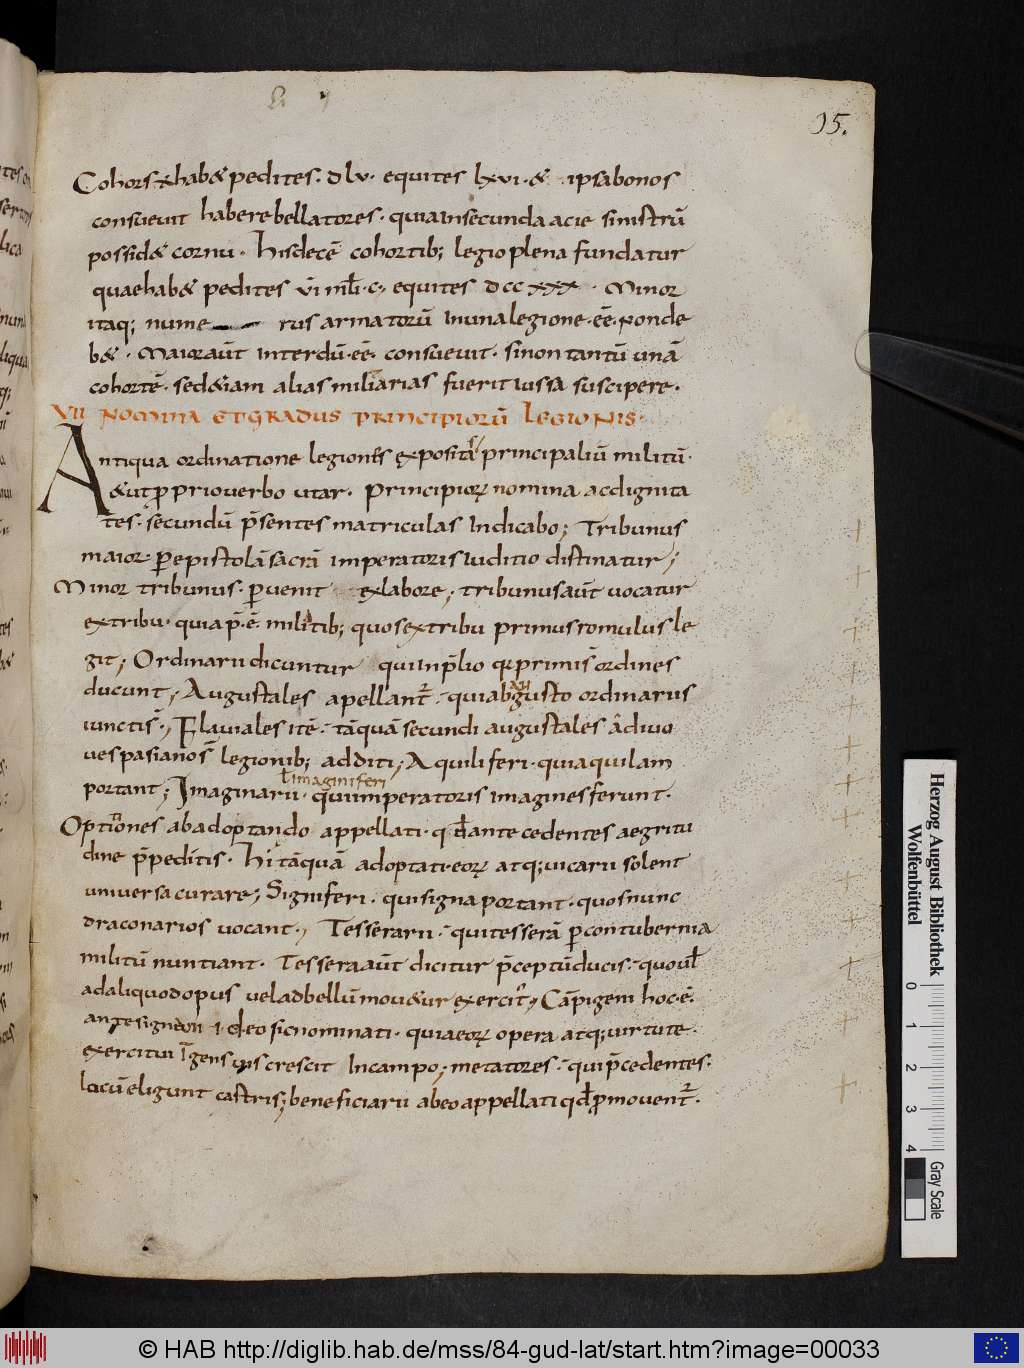 15.
Cohors x habet pedites · dlv · equites lxvi · & ipsa bonos
consuevit habere bellatores · quia in secunda acie sinistrū
possidet cornu · his decē cohortib; legio plena fundatur
quae habet pedites vī mīl · c · equites dccxxx · Minor
itaq; nume rus armatorū in una legione · ēē · non de
bet · Maior aūt interdū · ēē · consuevit · si non tantū unā
cohortē · sed etiam alias miliarias fuerit iussa suscipere ·
VII NOMINA ET GRADUS PRINCIPIORŪ LEGIONIS ·
Antiqua ordinatione legiones exposita principaliū militū ·
& ut proprio verbo utar · principiorū nomina ac dignita
tes · secundū p̄sentes matriculas indicabo; Tribunus
maior · per epistolā sacrā imperatoris iuditio distinatur;
Minor tribunus · pervenit ex labore; tribunus aūt vocatur
ex tribu · quia p̄ · ē · militib; quos ex tribu primus romulus le
git; Ordinarii dicuntur qui in p̄lio q̄ primis ordines
ducunt; Augustales apellant̄ · qui ab augusto ordinariis
iuncti s̄; Flaviales itē · tāquā secundi augustales ā divo
vespasiano s̄ legionib; additi; Aquiliferi · qui aquilam
ł imaginiferi
portant; Imaginarii · qui imperatoris imagines ferunt ·
Optiones ab adoptando appellati · qđ antecedentes aegritu
dine p̄peditis · hi tāquā adoptati · eorū atq; vicarii solent
universa curare; Signiferi · qui signa portant · quos nunc
draconarios vocant; Tesserarii · qui tesserā p̄ contubernia
militū nuntiant · Tessera aūt dicitur p̄ceptū ducis · quo vł
ad aliquod opus vel ad bellū movetur exercit;; Cāpigeni hoc · ē ·
antesignani ideo sic nominati · quia eorū opera atq; virtute ·
exercitii gens crescit in campo; metatores · qui p̄cedentes ·
locū eligunt castris; beneficiarii ab eo appellati qđ promovent̄ ·
Herzog August Bibliothek
Wolfenbüttel
0 1 2 3 4
Gray Scale
© HAB http://diglib.hab.de/mss/84-gud-lat/start.htm?image=00033